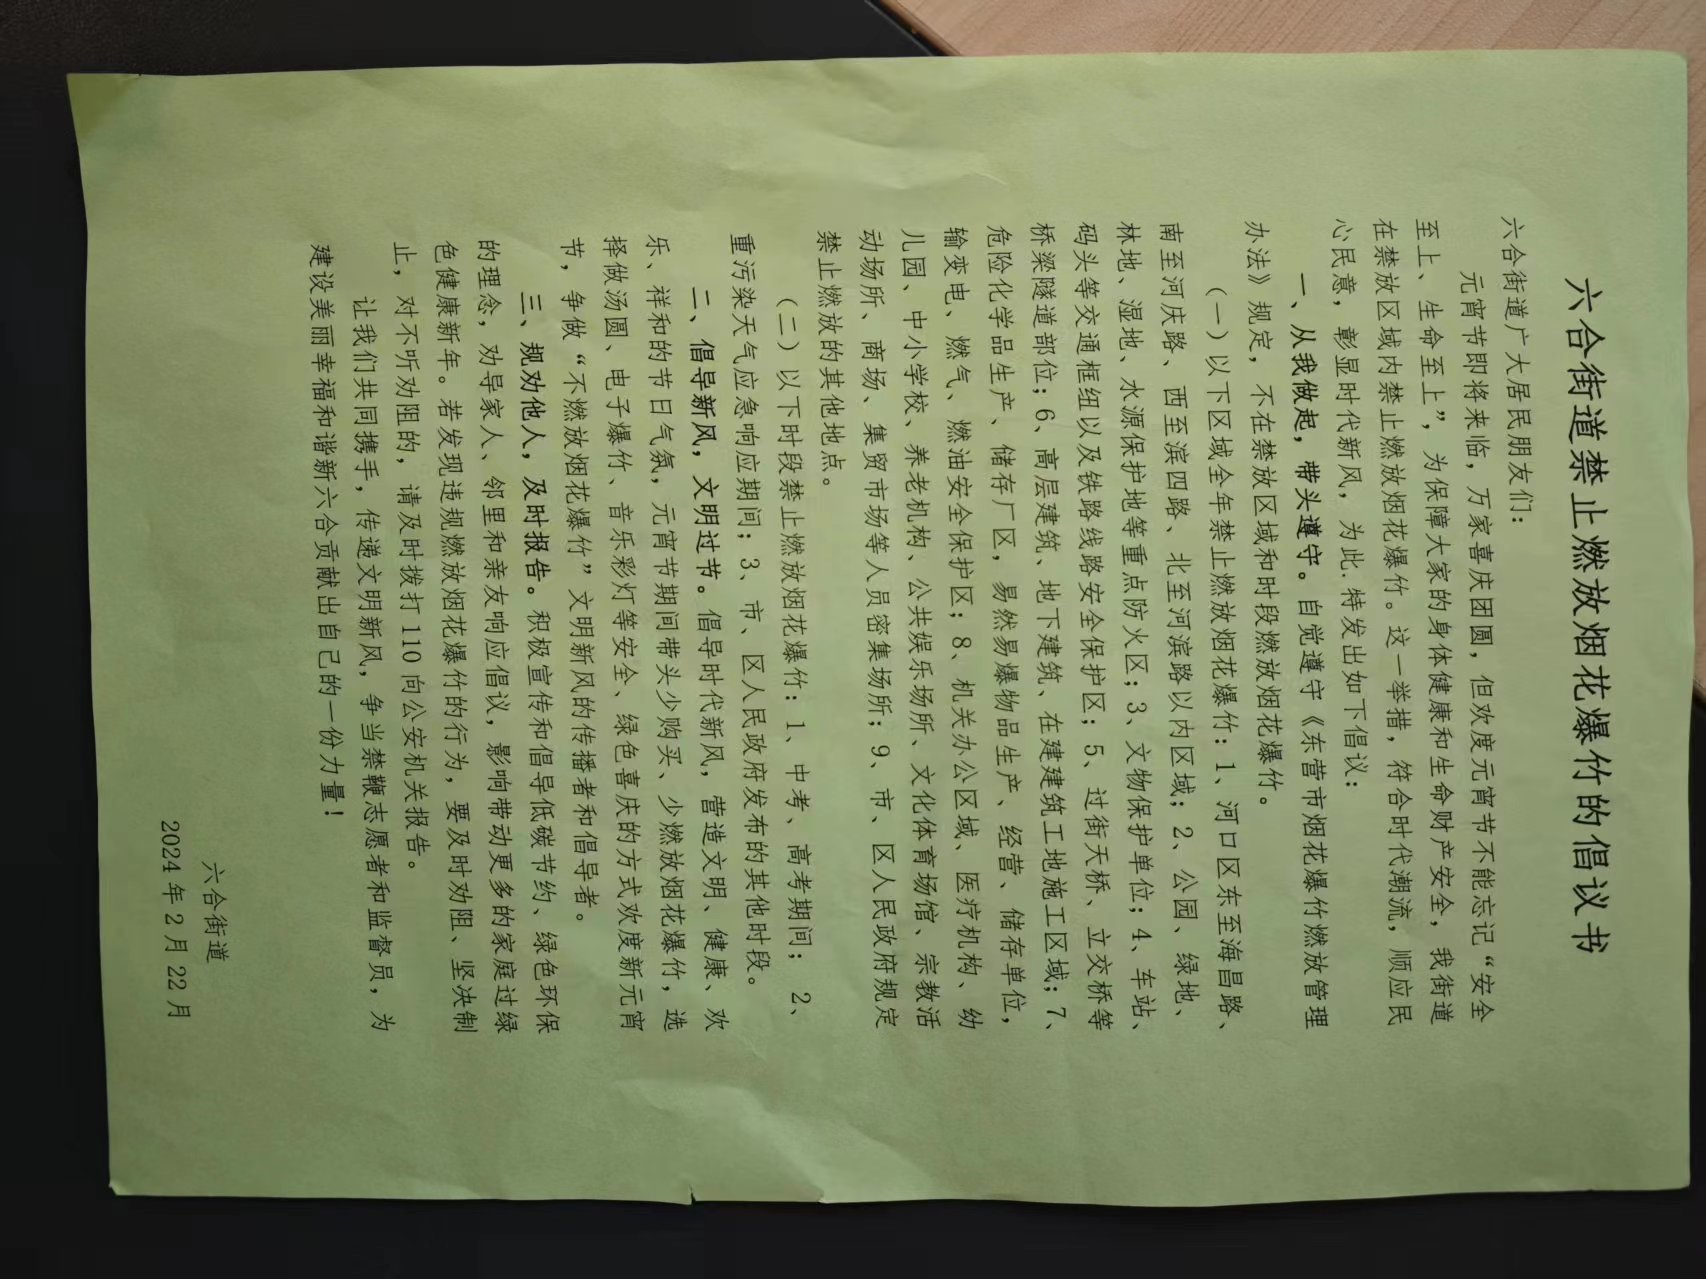 六合街道禁止燃放烟花爆竹的倡议书
六合街道广大居民朋友们：
元宵节即将来临，万家喜庆团圆，但欢度元宵节不能忘记“安全
至上、生命至上”，为保障大家的身体健康和生命财产安全，我街道
在禁放区域内禁止燃放烟花爆竹。这一举措，符合时代潮流，顺应民
心民意，彰显时代新风，为此.特发出如下倡议：
一、从我做起，带头遵守。自觉遵守《东营市烟花爆竹燃放管理
办法》规定，不在禁放区域和时段燃放烟花爆竹。
（一）以下区域全年禁止燃放烟花爆竹：1、河口区东至海昌路、
南至河庆路、西至滨四路、北至河滨路以内区域；2、公园、绿地、
林地、湿地、水源保护地等重点防火区；3、文物保护单位；4、车站、
码头等交通框纽以及铁路线路安全保护区；5、过街天桥、立交桥等
桥梁隧道部位；6、高层建筑、地下建筑、在建建筑工地施工区域；7、
危险化学品生产、储存厂区，易然易爆物品生产、经营、储存单位，
输变电、燃气、燃油安全保护区；8、机关办公区域、医疗机构、幼
儿园、中小学校、养老机构、公共娱乐场所、文化体育场馆、宗教活
动场所、商场、集贸市场等人员密集场所；9、市、区人民政府规定
禁止燃放的其他地点。
（二）以下时段禁止燃放烟花爆竹：1、中考、高考期间；2、
重污染天气应急响应期间；3、市、区人民政府发布的其他时段。
二、倡导新风，文明过节。倡导时代新风，营造文明、健康、欢
乐、祥和的节日气氛，元宵节期间带头少购买、少燃放烟花爆竹，选
择做汤圆、电子爆竹、音乐彩灯等安全、绿色喜庆的方式欢度新元宵
节，争做“不燃放烟花爆竹”文明新风的传播者和倡导者。
三、规劝他人，及时报告。积极宣传和倡导低碳节约、绿色环保
的理念，劝导家人、邻里和亲友响应倡议，影响带动更多的家庭过绿
色健康新年。若发现违规燃放烟花爆竹的行为，要及时劝阻、坚决制
止，对不听劝阻的，请及时拨打110向公安机关报告。
让我们共同携手，传递文明新风，争当禁鞭志愿者和监督员，为
建设美丽幸福和谐新六合贡献出自己的一份力量！
六合街道
2024年2月22月